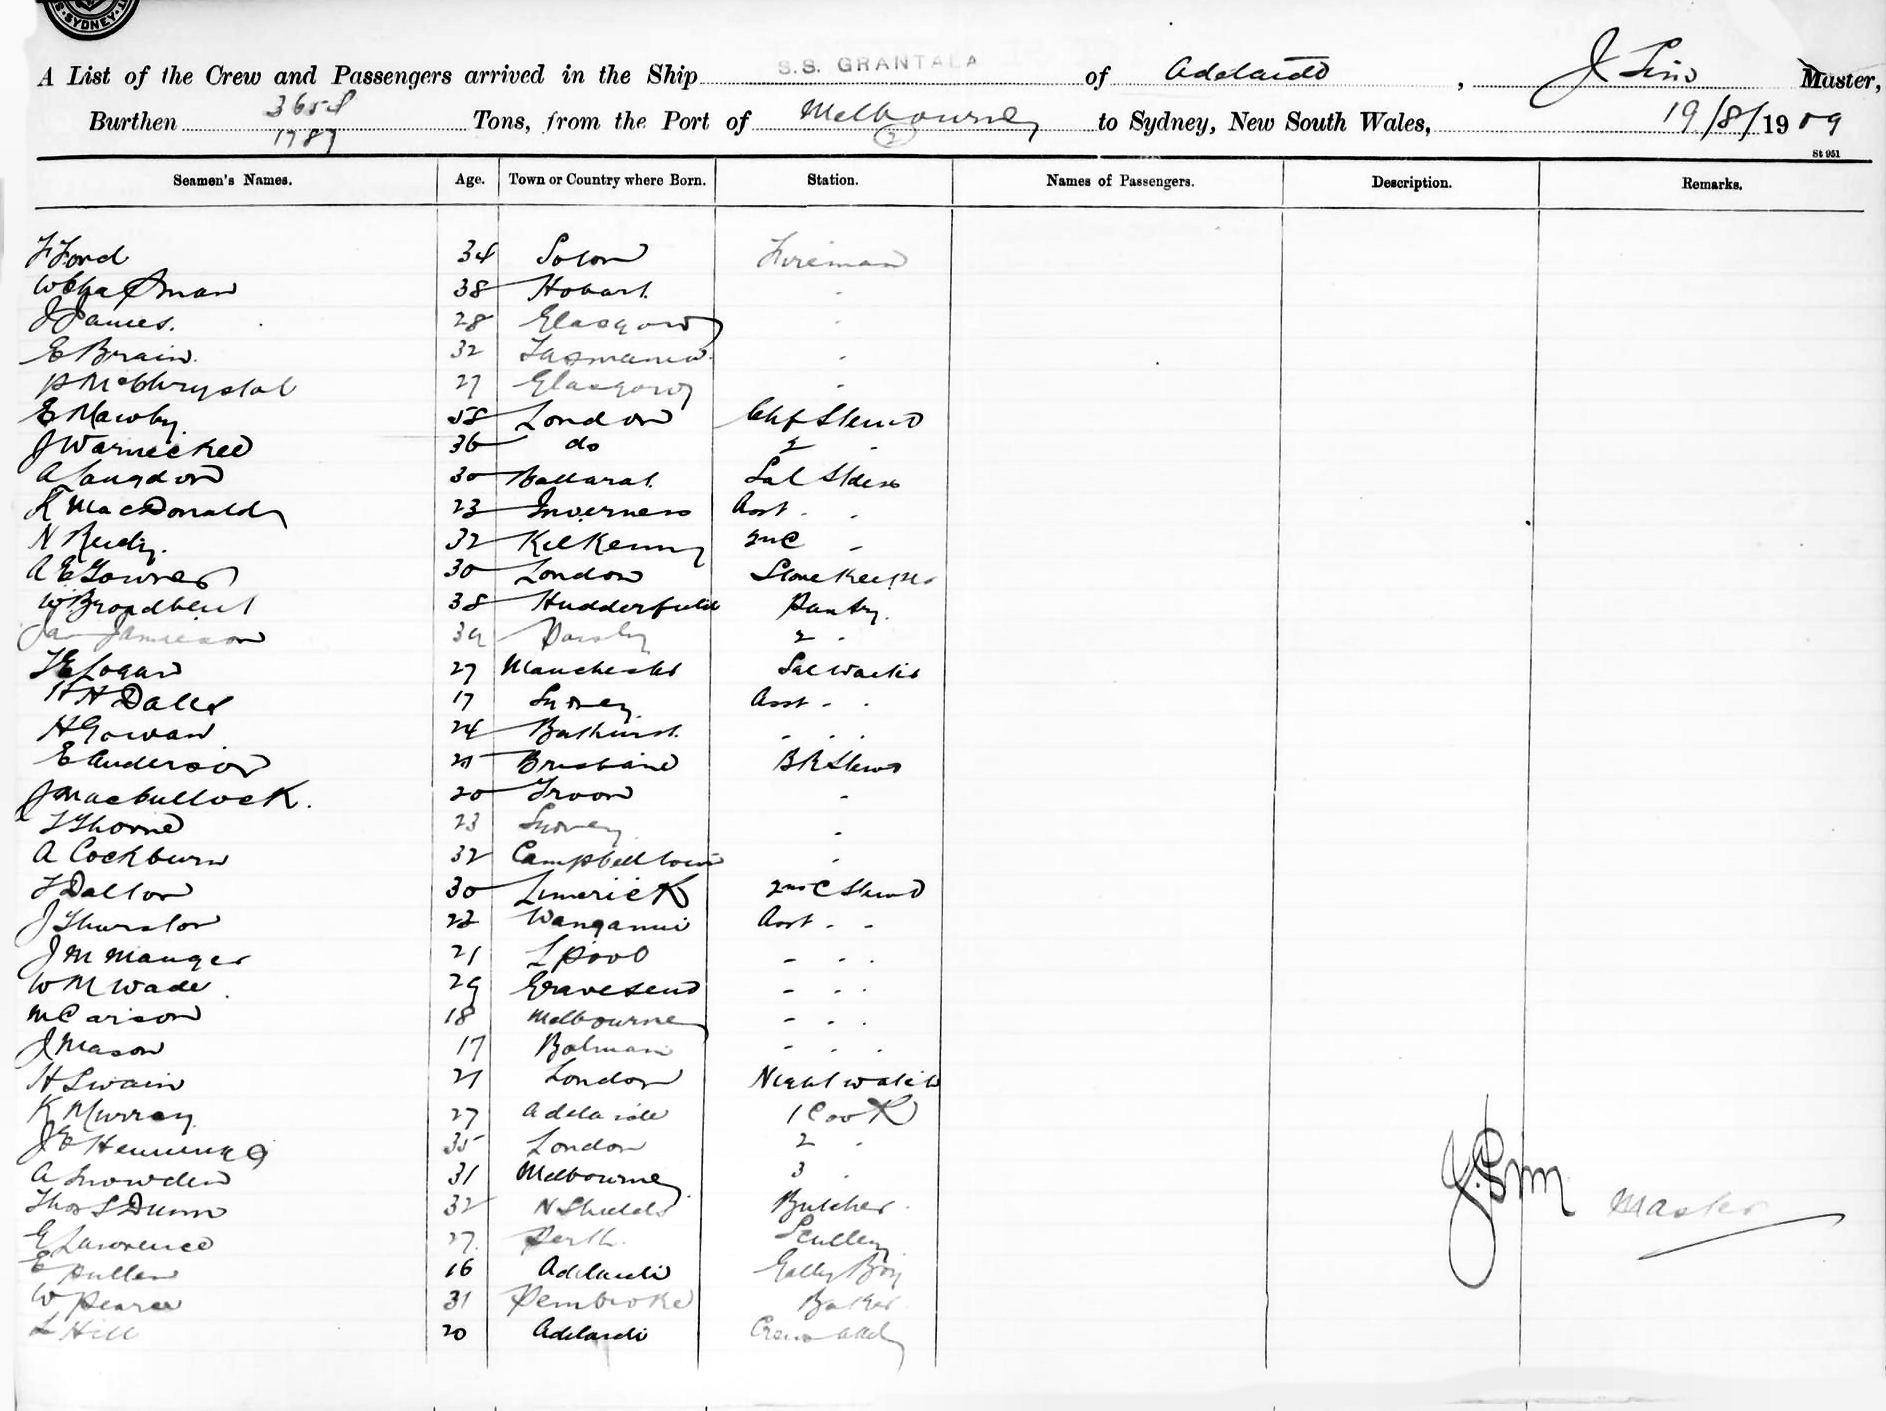 SYDNEY
A List of the Crew and Passengers arrived in the Ship S.S. GRANTALA of Adelaide, J Sim Master,
Burthen 3654 1787 Tons, from the Port of Melbourne (2) to Sydney, New South Wales, 19/8/1909
St 951
Seamen's Names. Age. Town or Country where Born. Station. Names of Passengers. Description. Remarks.
F Ford 34 Solon Fireman
W Chapman 38 Hobart "
J James. 28 Glasgow "
E Brain. 32 Tasmania "
P McChrystal 27 Glasgow "
E Mawby. 58 London Chf Stewd
J Warneckee 36 do 2 "
A Langdon 30 Ballarat. Sal Stdess
K MacDonald 23 Inverness Asst. "
N Reidy. 32 Kilkenny 2nd C "
A E Gowner 30 London Storekeeper
W Broadbent 38 Hudderfield Pantry.
Jas Jamieson 39 Paisley 2 "
T E Logan 27 Manchester Sal Waiter
H H Dalls 17 Sydney Asst " "
H Gowan 24 Bathurst. " " "
E Anderson 21 Brisbane B R Stewd
J MacCullock. 20 Troon "
T Thorne 23 Sydney "
A Cockburn 32 Campbelltown "
T Dalton 30 Limerick 2nd C Stewd
J Thurston 22 Wanganui Asst " "
J M Manger 21 L Pool " " "
W M Wade 29 Gravesend " " "
M Carson 18 Melbourne " " "
J Mason 17 Balmain " " "
H Swain 21 London Nightwatch
K Murray 27 Adelaide 1 Cook
J E Hennings 35 London 2 "
A Snowden 31 Melbourne 3 "
Thos S Dunn 32 N Shields Butcher
E Lawrence 27. Perth. Scullery
E Pullen 16 Adelaide Gally Boy
W Pearce 31 Pembroke Baker
L Hill 20 Adelaide Crews
J. Sim Master